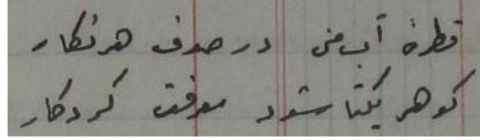 قطرهٔ آب منی در صدف هر نگار
گوهر یکتا شود معرفت کردگار